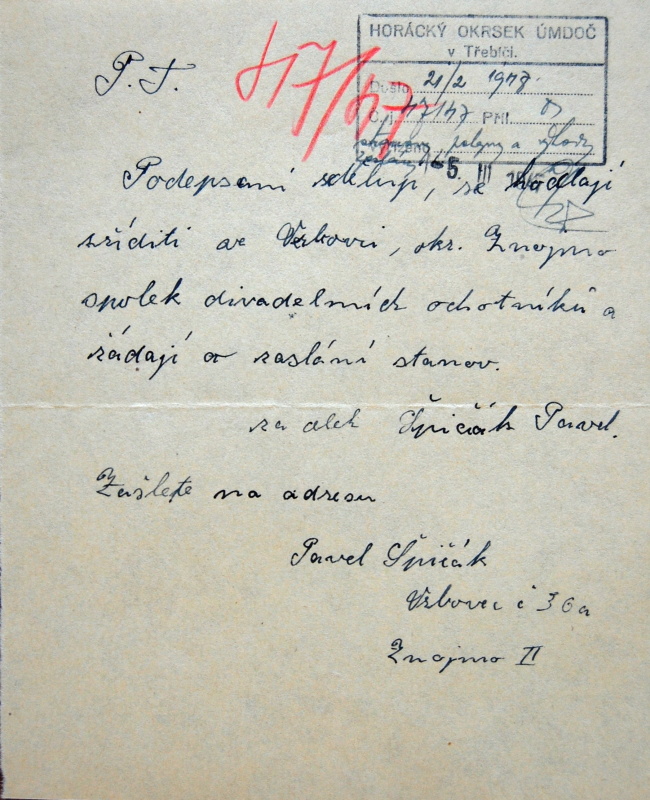 HORÁCKÝ OKRSEK ÚMDOČ
v Třebíči.
Došlo 21/2 1947.
Č. j. 47/47 Příl.
stanovy, pokyny a
5. III
47/47
P. T.
Podepsaní sdělují, že hodlají
zříditi ve Vrbovci, okr. Znojmo
spolek divadelních ochotníků a
žádají o zaslání stanov.
za Špičák Pavel.
Zašlete na adresu
Pavel Špičák
Vrbovec č 36a
Znojmo II